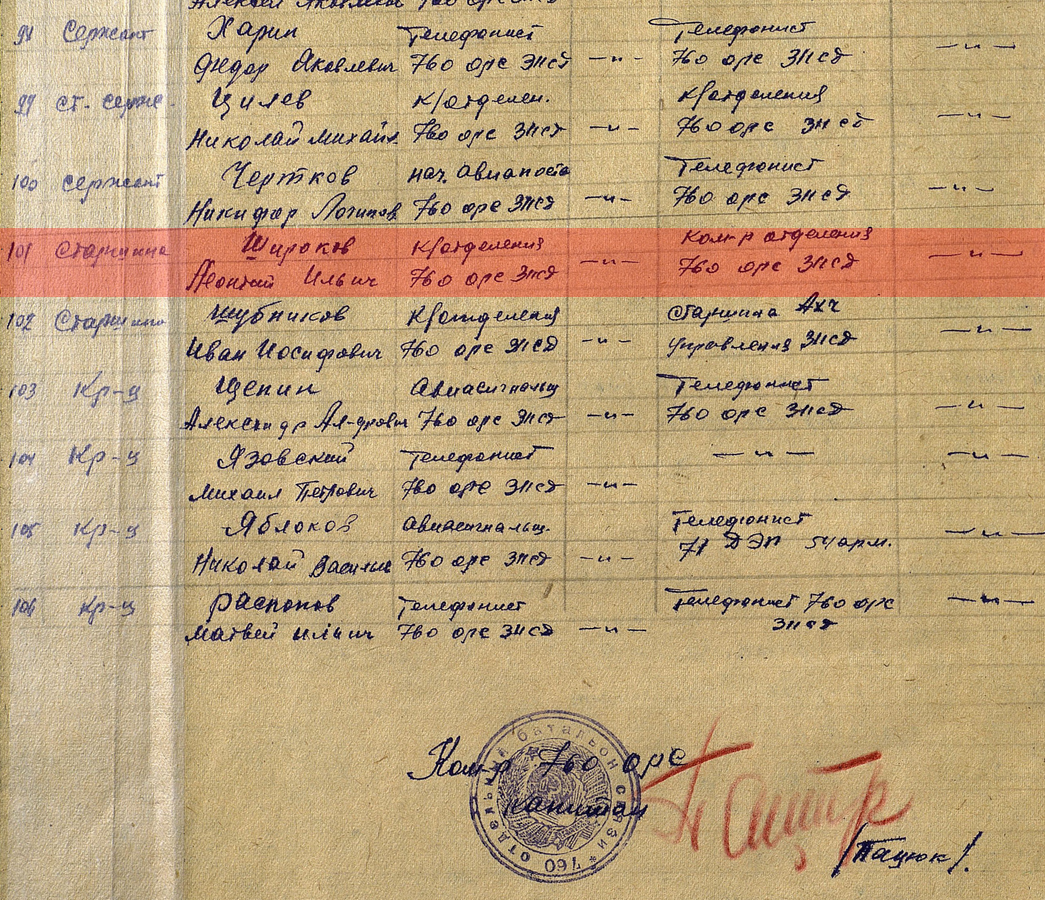 Алексей Яковлевич 760 орс ЗПСД
98 Сержант Харин Телефонист Телефонист
Федор Яковлевич 760 орс ЗПСД —〃— 760 орс ЗПСД —〃—
99 Ст. серж. Цилев к/отделен. к/отделения
Николай Михайл. 760 орс ЗПСД —〃— 760 орс ЗПСД —〃—
100 сержант Чертков нач. авиапоста Телефонист
Никифор Логинов. 760 орс ЗПСД —〃— 760 орс ЗПСД —〃—
101 Старшина Широков к/отделения Ком-р отделения
Леонтий Ильич 760 орс ЗПСД —〃— 760 орс ЗПСД —〃—
102 Старшина Шубников к/отделения старшина АХЧ
Иван Иосифович 760 орс ЗПСД —〃— управления ЗПСД —〃—
103 Кр-ц Щепин Авиасигнальщ Телефонист
Александр Ал-дрович 760 орс ЗПСД —〃— 760 орс ЗПСД —〃—
104 Кр-ц Язовский Телефонист —〃— —〃—
Михаил Петрович 760 орс ЗПСД —〃—
105 Кр-ц Яблоков авиасигнальщ. Телефонист
Николай Василье 760 орс ЗПСД —〃— 71 ДЭП 54 арм. —〃—
106 Кр-ц Распопов Телефонист Телефонист 760 орс —〃—
Матвей Ильич 760 орс ЗПСД —〃— ЗПСД
Ком-р 760 орс
капитан
/Пацюк/.
отдельный батальон связи * 760